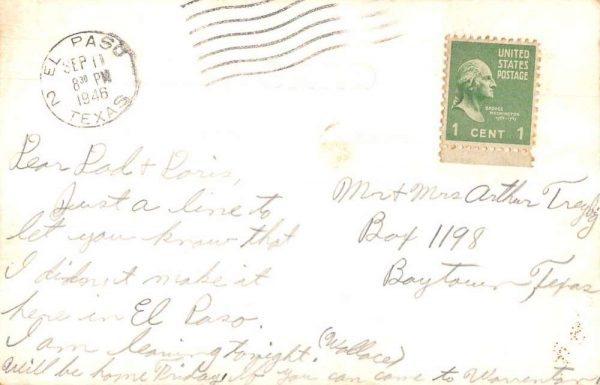 EL PASO
SEP 11
8 30 PM
1946
2 TEXAS
UNITED
STATES
POSTAGE
GEORGE
WASHINGTON
1 CENT 1
Dear Dad & Doris,
Just a line to
let you know that
I didn't make it
here in El Paso.
I am leaving tonight. (Wallace)
Will be home Friday, if you can come to
Mr & Mrs Arthur
Box 1198
Baytown Texas